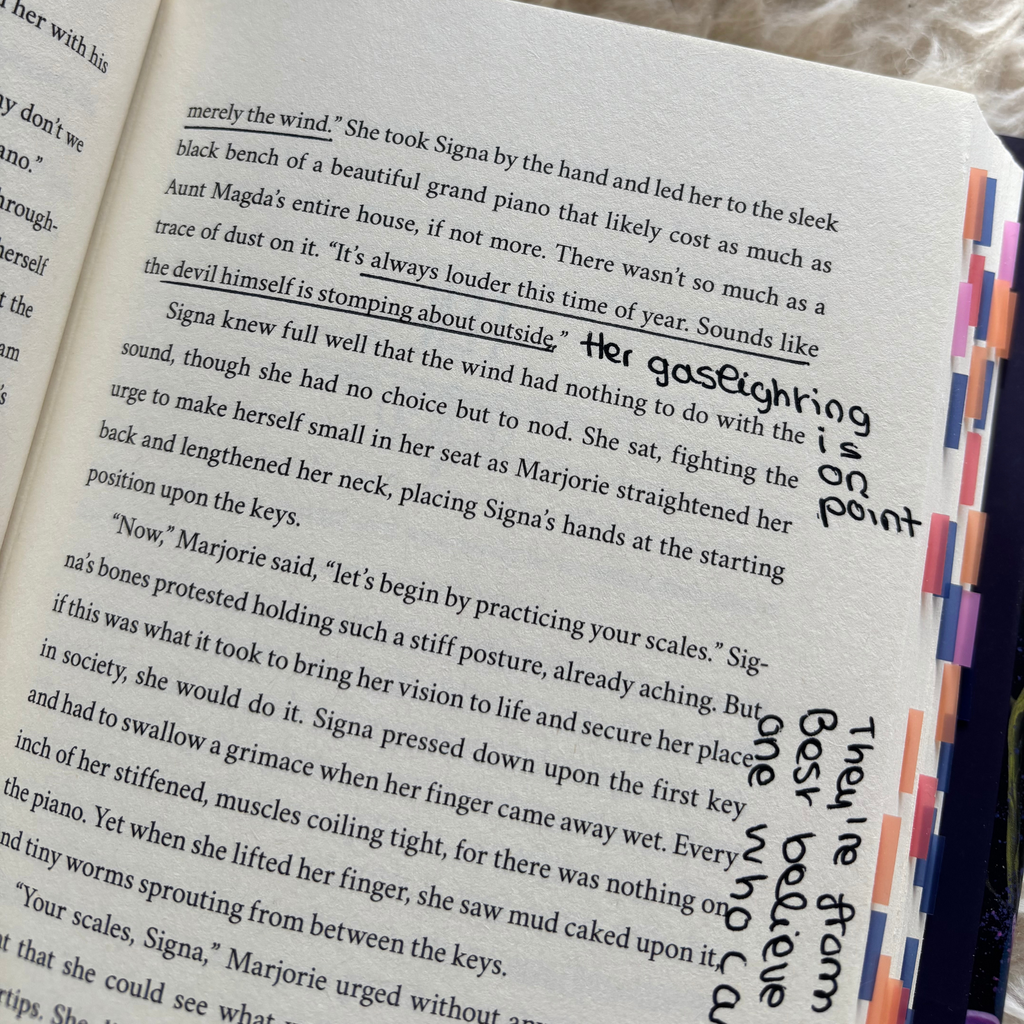 her with his
don't we
merely the wind." She took Signa by the hand and led her to the sleek
black bench of a beautiful grand piano that likely cost as much as
Aunt Magda's entire house, if not more. There wasn't so much as a
trace of dust on it. "It's always louder this time of year. Sounds like
the devil himself is stomping about outside,"
Her gasleighring
is
on
point
Signa knew full well that the wind had nothing to do with the
sound, though she had no choice but to nod. She sat, fighting the
urge to make herself small in her seat as Marjorie straightened her
back and lengthened her neck, placing Signa's hands at the starting
position upon the keys.
"Now," Marjorie said, "let's begin by practicing your scales." Sig-
na's bones protested holding such a stiff posture, already aching. But
if this was what it took to bring her vision to life and secure her place
in society, she would do it. Signa pressed down upon the first key
and had to swallow a grimace when her finger came away wet. Every
inch of her stiffened, muscles coiling tight, for there was nothing on
the piano. Yet when she lifted her finger, she saw mud caked upon it,
tiny worms sprouting from between the keys.
"Your scales, Signa," Marjorie urged without
that she could see what
She
They're from
Besr believe
one who ca